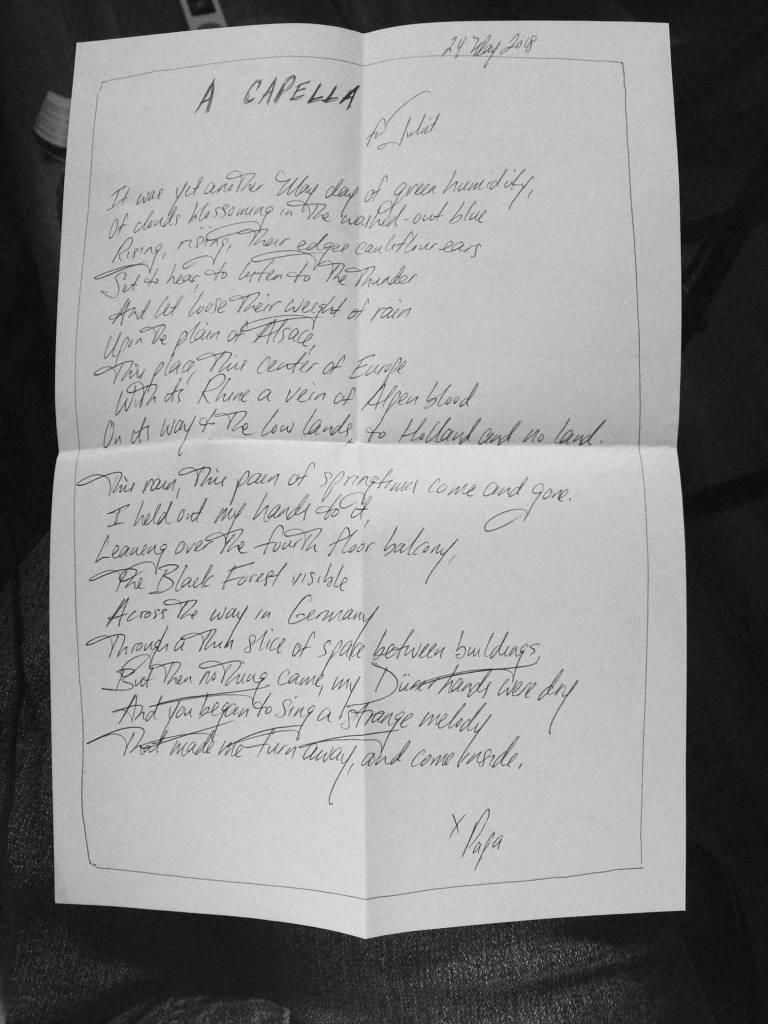 24 May 2018
A CAPELLA
for Juliet
It was yet another May day of green humidity,
Of clouds blossoming in the washed-out blue
Rising, rising, their edges cauliflour ears
Set to hear, to listen to the thunder
And let loose their weight of rain
Upon the plain of Alsace,
This place, this center of Europe
With its Rhine a vein of Alpen blood
On its way to the low lands, to Holland and no land.
This rain, this pain of springtimes come and gone.
I held out my hands to it,
Leaning over the fourth floor balcony,
The Black Forest visible
Across the way in Germany
Through a thin slice of space between buildings,
But then nothing came, my Dürer hands were dry
And you began to sing a strange melody
That made me turn away, and come inside.
x Papa